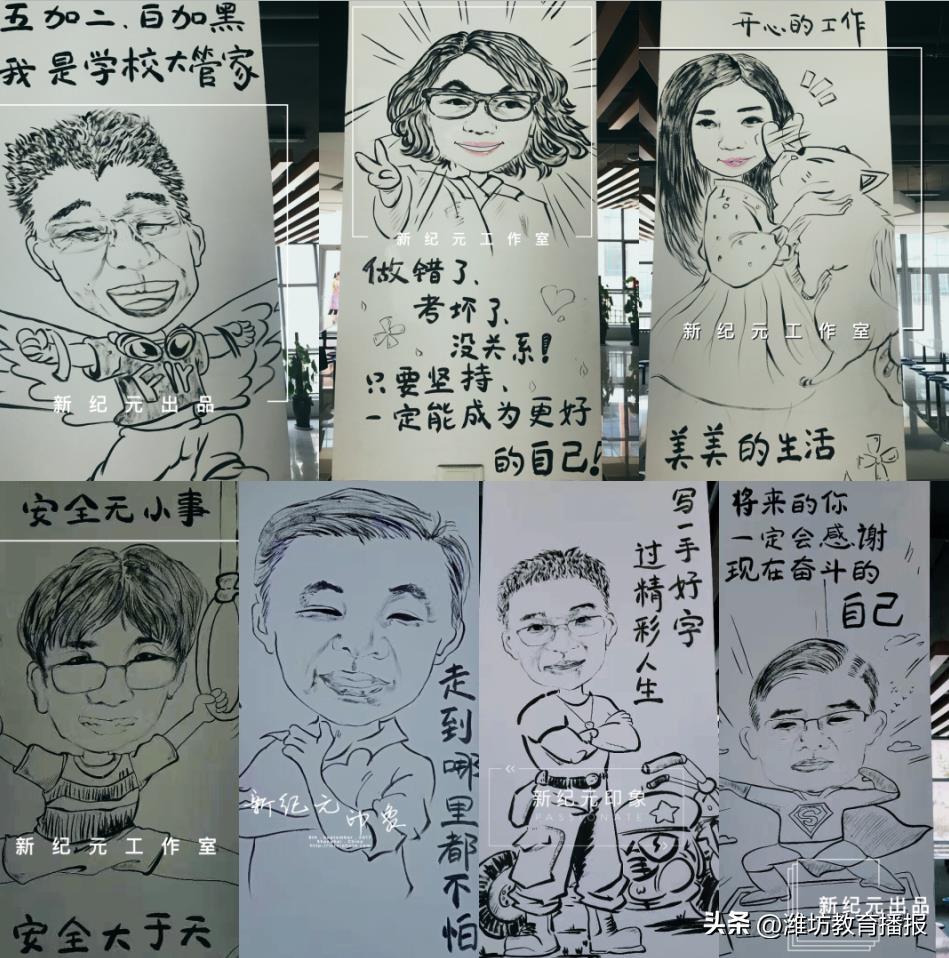 五加二、白加黑
我是学校大管家
新纪元出品
新纪元工作室
做错了、
考坏了、
没关系！
只要坚持、
一定能成为更好
的自己！
开心的工作
新纪元工作室
美美的生活
安全无小事
新纪元工作室
安全大于天
走到哪里都不怕
新纪元
印象
写一手好字
过精彩人生
新纪元印象
PASSIONATE
将来的你
一定会感谢
现在奋斗的
自己
S
新纪元出品
头条 @潍坊教育播报